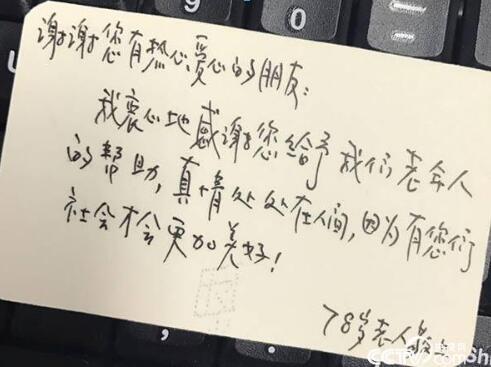 谢谢您有热心、爱心的朋友:
我衷心地感谢您给予我们老年人
的帮助,真情处处在人间,因为有您们
社会才会更加美好!
78岁老人
9
0
CCTV